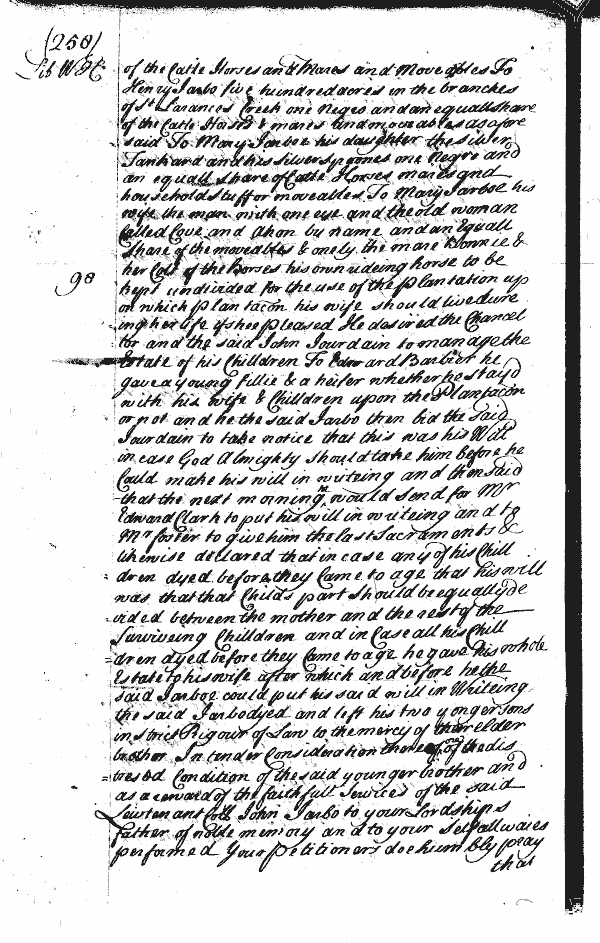 (250)
Lib WHC
of the Catle Horses and Mares and Moveables To
Henry Jarbo five hundred acres in the branches
of St Laurances Creek one Negro and an equall share
of the Catle Horses & mares and moveables as afore
said To Mary Jarboe his daughter the silver
Tankard and his silver spoones one Negro and
an equall share of Catle Horses mares and
household stuff or moveables To Mary Jarboe his
wife the man with one eye and the old woman
Called Cove and Ahon by name and an Equall
share of the moveables & onely the mare Bonnie &
her Colt of the Horses his own rideing horse to be
98
kept undivided for the use of the plantation up
on which plantacon his wife should live dure
ing her life if shee pleased He desired the Chancel
tor and the said John Jourdain to manage the
Estate of his Chilldren To Edward Barbier he
gave a young fillie & a heifer whether he stay'd
with his wife & Chilldren upon the Plantacon
or not and he the said Jarbo then bid the said
Jourdain to take notice that this was his Will
in case God Almighty should take him before he
Could make his will in writeing and then said
that the next morning would send for Mr
Edward Clark to put his will in writeing and to
Mr foster to give him the last Sacraments &
likewise declared that in case any of his Chill
dren dyed before they Came to age that his will
was that that Childs part should be equally de
vided between the mother and the rest of the
Surviveing Chilldren and in Case all his Chill
=dren dyed before they Came to age he gave his whole
Estate to his wife after which and before he the
said Jarboe could put his said will in Whiteing
the said Jarbo dyed and left his two yonger sons
in strict Rigour of Law to the mercy of their elder
brother In tander Consideration thereof of the dis
=tressed Condition of the said younger brother and
as a reward of the faithfull Services of the said
Lewtenant Coll John Jarbo to your Lordships
father of noble memory and to your Self allwaies
performed Your Petitioners doe humbly pray
that